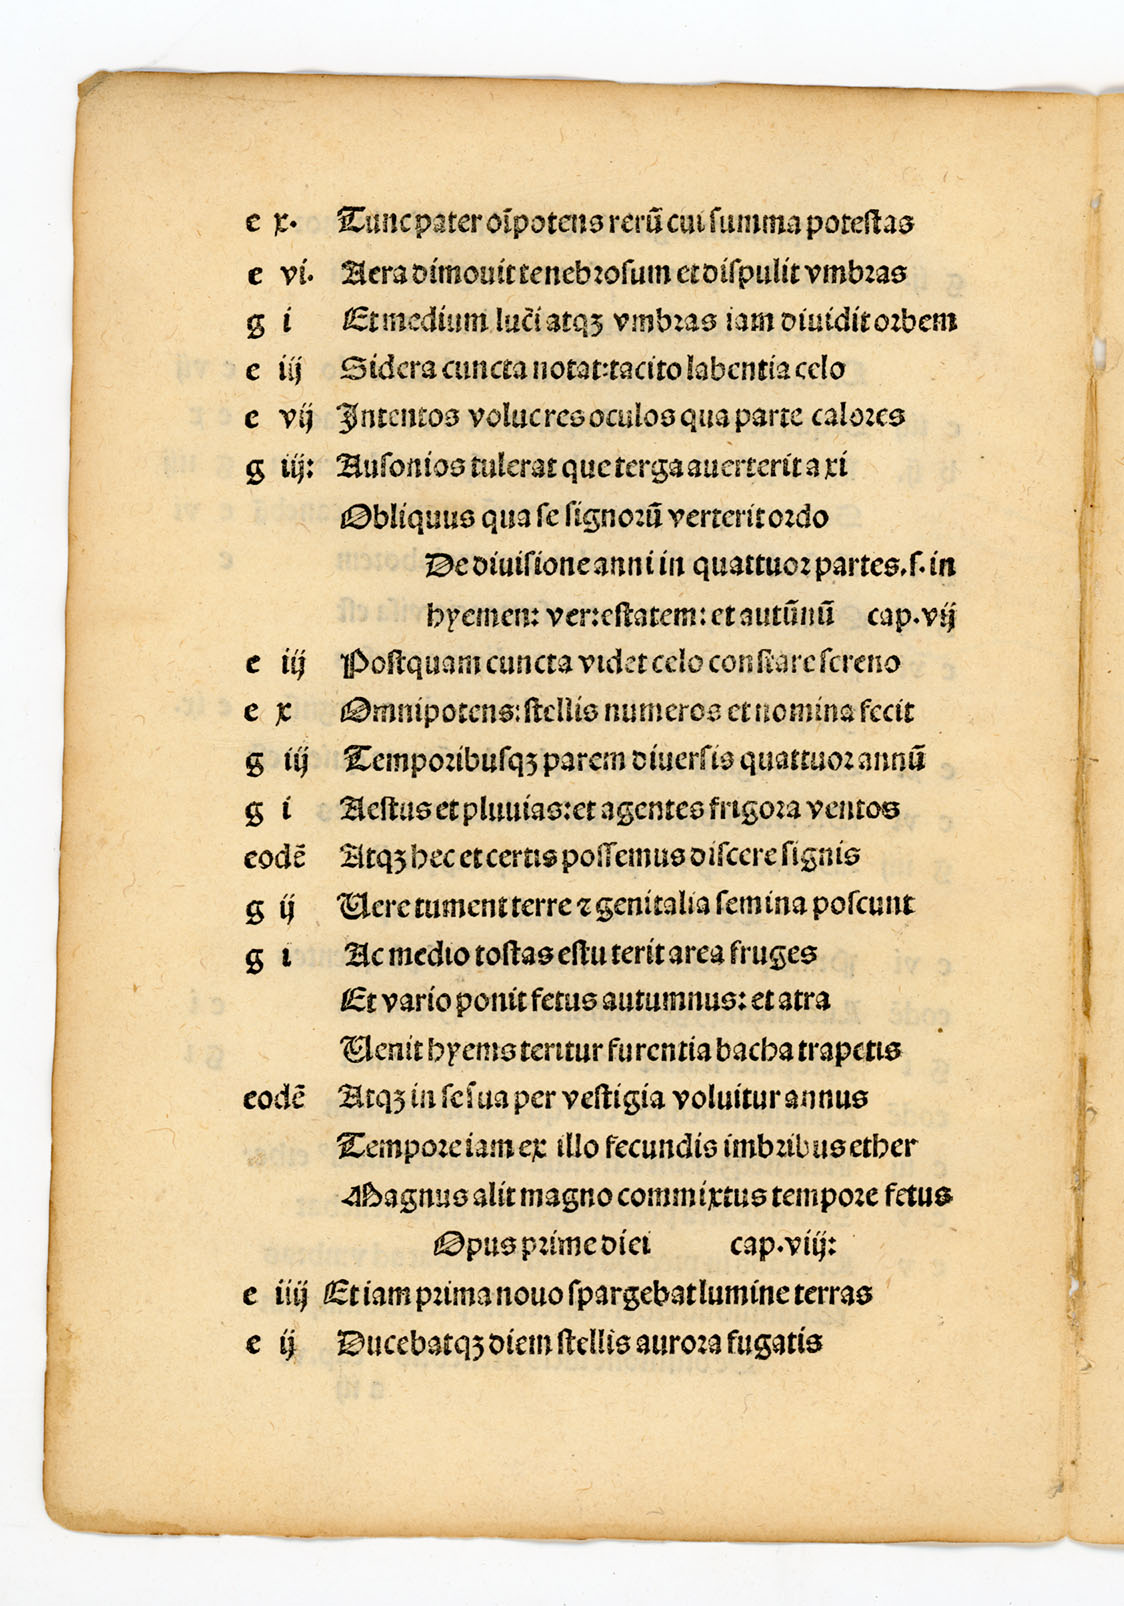 e x. Tunc pater oīpotens rerū cui summa potestas
e vi. Aera dimouit tenebrosum et dispulit vmbras
g i Et medium luci atqꝫ vmbras iam diuidit orbem
e iij Sidera cuncta notat: tacito labentia celo
e vij Intentos volucres oculos qua parte calores
g iij: Ausonios tulerat que terga auerterit axi
Obliquus qua se signorū verterit ordo
De diuisione anni in quattuor partes. s. in
hyemen: ver: estatem: et autūnū cap. vij
e iij Postquam cuncta videt celo constare sereno
e x Omnipotens: stellis numeros et nomina fecit
g iij Temporibusqꝫ parem diuersis quattuor annū
g i Aestus et pluuias: et agentes frigora ventos
eodē Atqꝫ hec et certis possemus discere signis
g ij Uere tument terre ⁊ genitalia semina poscunt
g i Ac medio tostas estu terit area fruges
Et vario ponit fetus autumnus: et atra
Uenit hyems teritur furentia bacha trapetis
eodē Atqꝫ in se sua per vestigia voluitur annus
Tempore iam ex illo fecundis imbribus ether
Magnus alit magno commixtus tempore fetus
Opus prime diei cap. viij:
e iiij Et iam prima nouo spargebat lumine terras
e ij Ducebatqꝫ diem stellis aurora fugatis